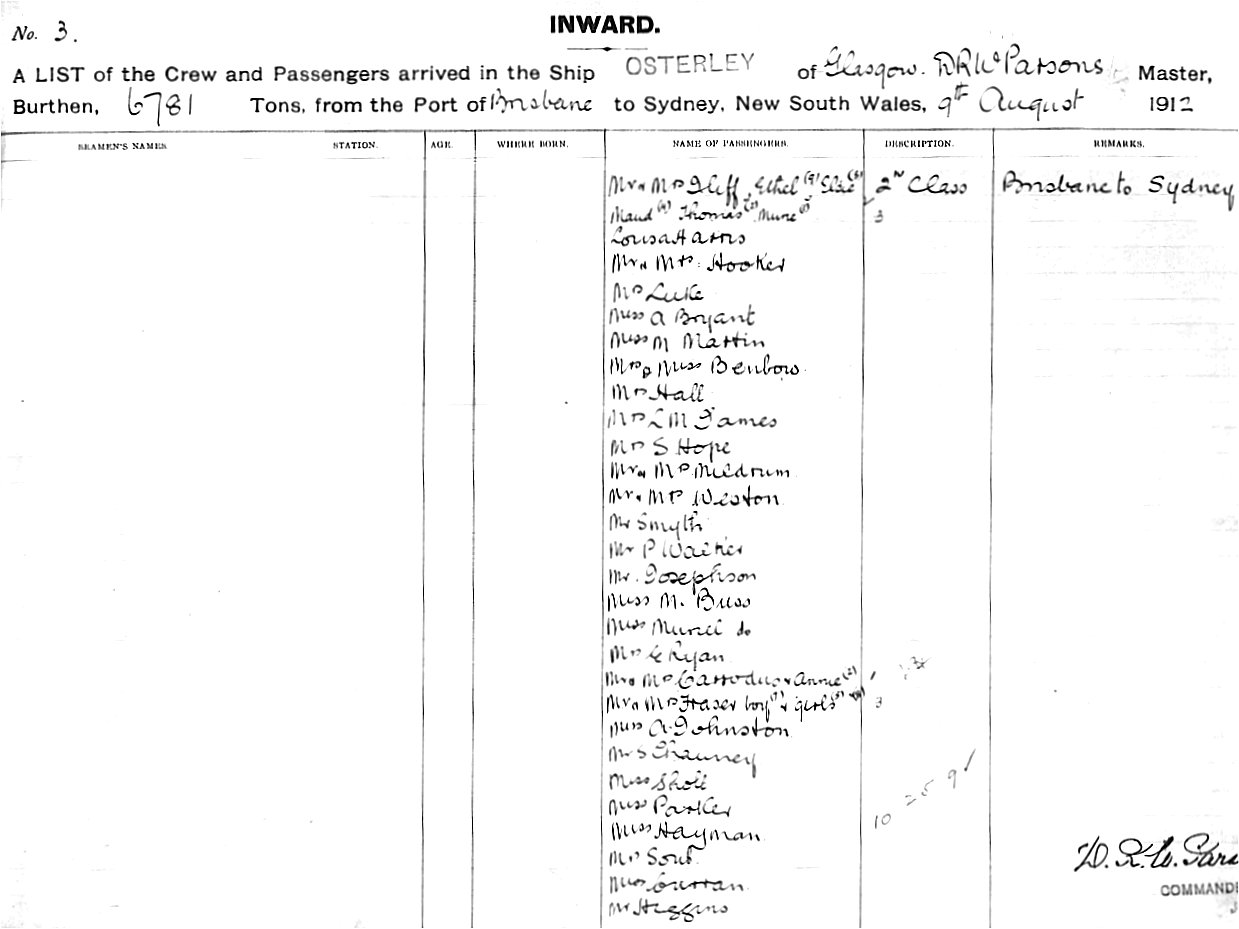 No. 3.
INWARD.
A LIST of the Crew and Passengers arrived in the Ship OSTERLEY of Glasgow. D R W Parsons Master,
Burthen, 6781 Tons, from the Port of Brisbane to Sydney, New South Wales, 9th August 1912
SEAMEN'S NAMES STATION. AGE. WHERE BORN. NAME OF PASSENGERS. DESCRIPTION. REMARKS.
Mr & Mrs Iliff, Ethel (9) Elsie 2nd Class Brisbane to Sydney
Maud Thomas 3
Louisa Harris
Mr & Mrs Hooker
Mrs Luke
Miss A Bryant
Miss M Martin
Mrs & Miss Benbow
Mrs Hall
Mrs L M James
Mrs S Hope
Mr & Mrs Meldrum
Mr & Mrs Weston
Mr Smyth
Mr P Walker
Mr. Josephson
Miss M. Buss
Miss Muriel do
Mrs Ryan
Mr & Mrs Carrodus & Annie (2)
Mr & Mrs Fraser boy (7) & girls (5) 3
Miss A Johnston
Mr S Chauncy
Miss Sholl
Miss Parker
Miss Hayman 10 25 9
Mrs
Miss Curran
Mr Higgins
D. R. W. Pars
COMMANDE